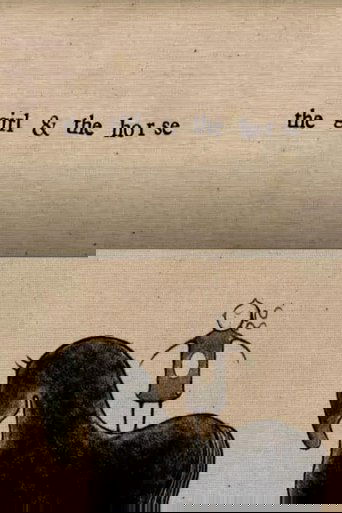 the girl & the horse the